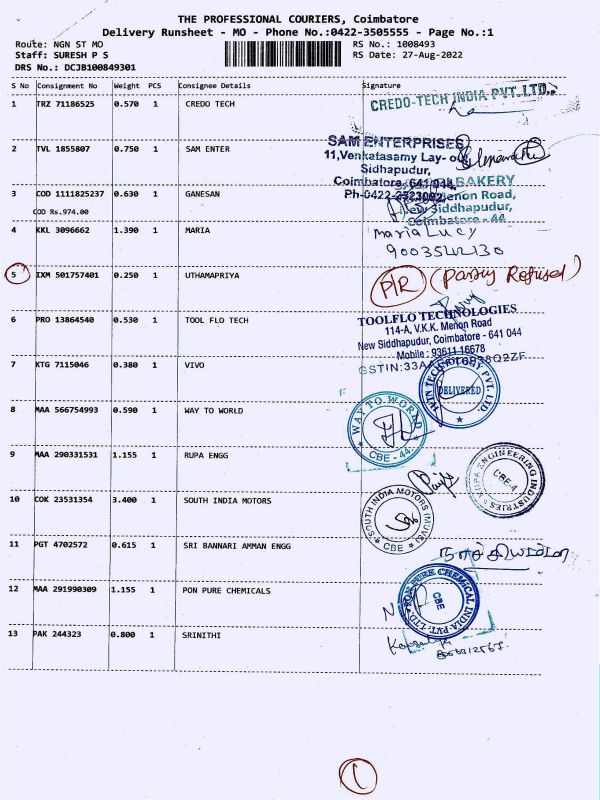 THE PROFESSIONAL COURIERS, Coimbatore
Delivery Runsheet - MO - Phone No.:0422-3505555 - Page No.:1
Route: NGN ST MO RS No.: 1008493
Staff: SURESH P S RS Date: 27-Aug-2022
DRS No.: DCJB100849301
S No Consignment No Weight PCS Consignee Details Signature
1 TRZ 71186525 0.570 1 CREDO TECH
CREDO-TECH INDIA PVT. LTD.,
2 TVL 1855807 0.750 1 SAM ENTER
SAM ENTERPRISES
11,Venkatasamy Lay- out
Sidhapudur,
Coimbatore 641 044.
3 COD 1111825237 0.630 1 GANESAN
COD Rs.974.00
BAKERY
Menon Road,
New Siddhapudur,
Coimbatore - 44
4 KKL 3096662 1.390 1 MARIA
Maria Lucy
9003542130
5 IXM 501757401 0.250 1 UTHAMAPRIYA
P/R (Party Refused)
6 PRO 13864540 0.530 1 TOOL FLO TECH
TOOLFLO TECHNOLOGIES
114-A, V.K.K. Menon Road
New Siddhapudur, Coimbatore - 641 044
Mobile : 93611 16678
7 KTG 7115046 0.380 1 VIVO
TECHNOLOGY PVT. LTD.
DELIVERED
8 MAA 566754993 0.590 1 WAY TO WORLD
WAY TO WORLD
CBE - 44.
9 MAA 290331531 1.155 1 RUPA ENGG
RUPA ENGINEERING INDUSTRIES
CBE-4
10 COK 23531354 3.400 1 SOUTH INDIA MOTORS
SOUTH INDIA MOTORS
CBE
11 PGT 4702572 0.615 1 SRI BANNARI AMMAN ENGG
12 MAA 291990309 1.155 1 PON PURE CHEMICALS
PON PURE CHEMICAL INDIA PVT. LTD.
CBE
13 PAK 244323 0.800 1 SRINITHI
1